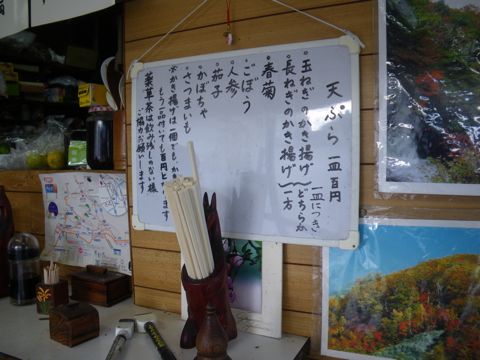 天ぷら 一皿百円
・玉ねぎのかき揚げ
・長ねぎのかき揚げ
一皿につき
どちらか
一方
・春菊
・ごぼう
・人参
・茄子
・かぼちゃ
・さつまいも
※かき揚げは一個でも、か
もう一品付いても百円と
薬草茶は飲み残しのない様
ご協力お願いします